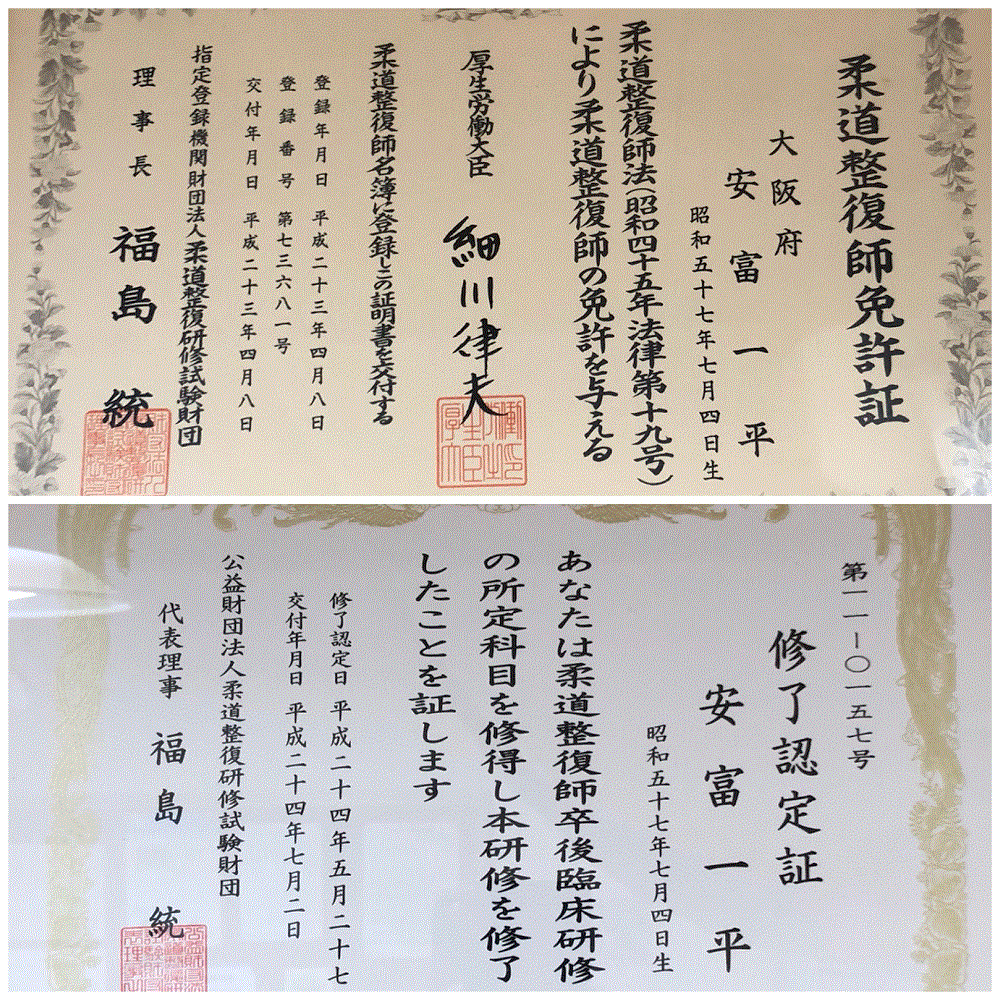 柔道整復師免許証
大阪府
安富一平
昭和五十七年七月四日生
柔道整復師法(昭和四十五年法律第十九号)
により柔道整復師の免許を与える
厚生労働大臣
細川律夫
柔道整復師名簿に登録しこの証明書を交付する
登録年月日 平成二十三年四月八日
登録番号 第七三六八一号
交付年月日 平成二十三年四月八日
指定登録機関財団法人柔道整復研修試験財団
理事長 福島 統
第一一-〇一五七号
修了認定証
安富一平
昭和五十七年七月四日生
あなたは柔道整復師卒後臨床研修
の所定科目を修得し本研修を修了
したことを証します
修了認定日 平成二十四年五月二十七
交付年月日 平成二十四年七月二日
公益財団法人柔道整復研修試験財団
代表理事 福島 統